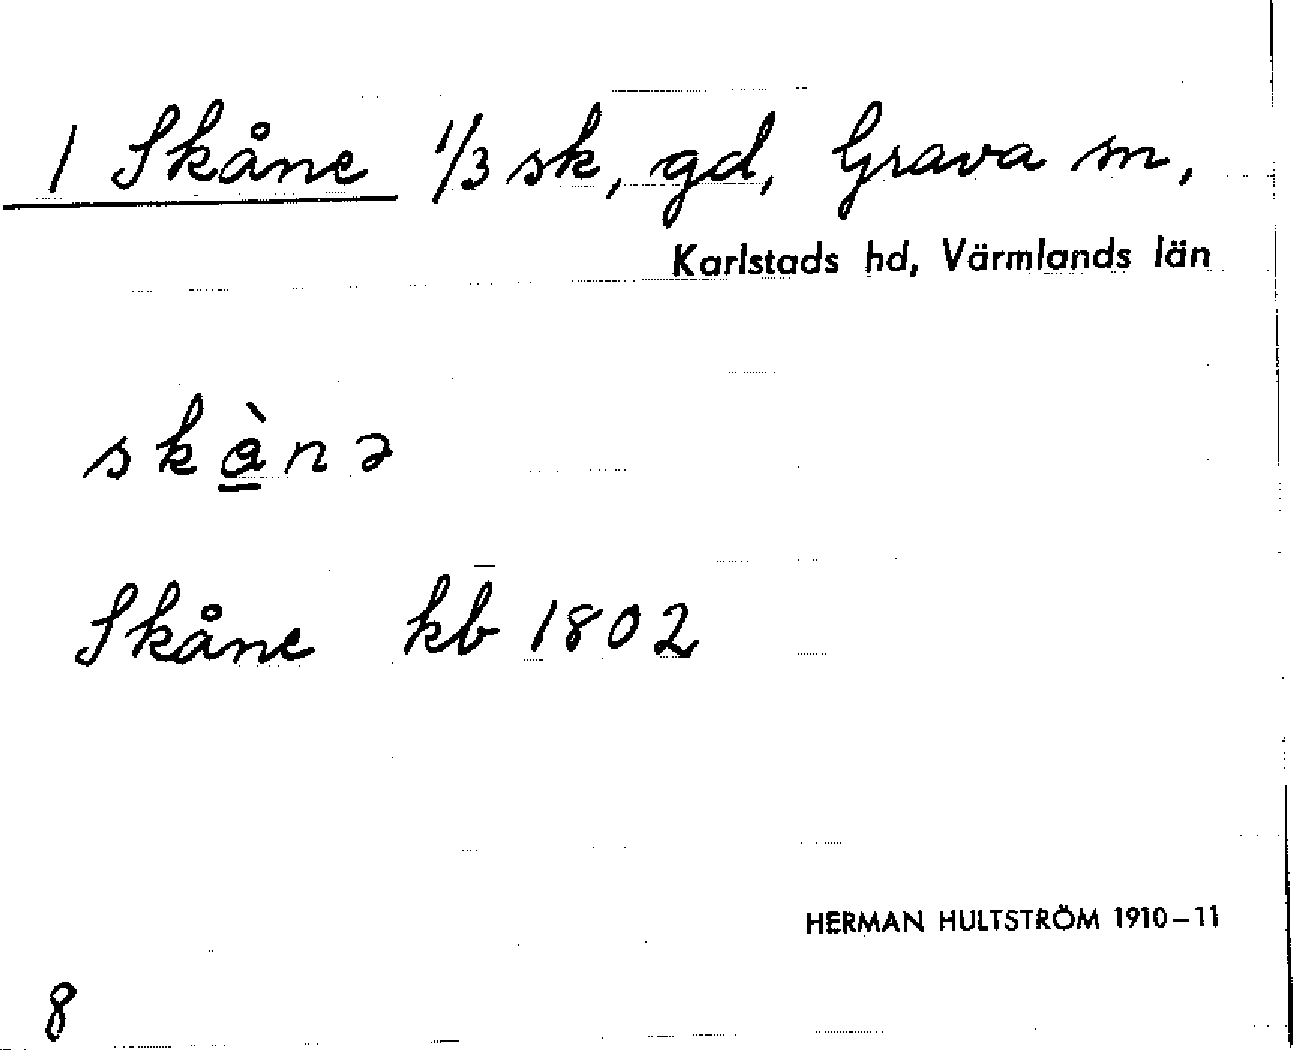 1 Skåne 1/3 sk, gd, Grava sn,
Karlstads hd, Värmlands län
skànə
Skåne kb 1802
HERMAN HULTSTRÖM 1910-11
8